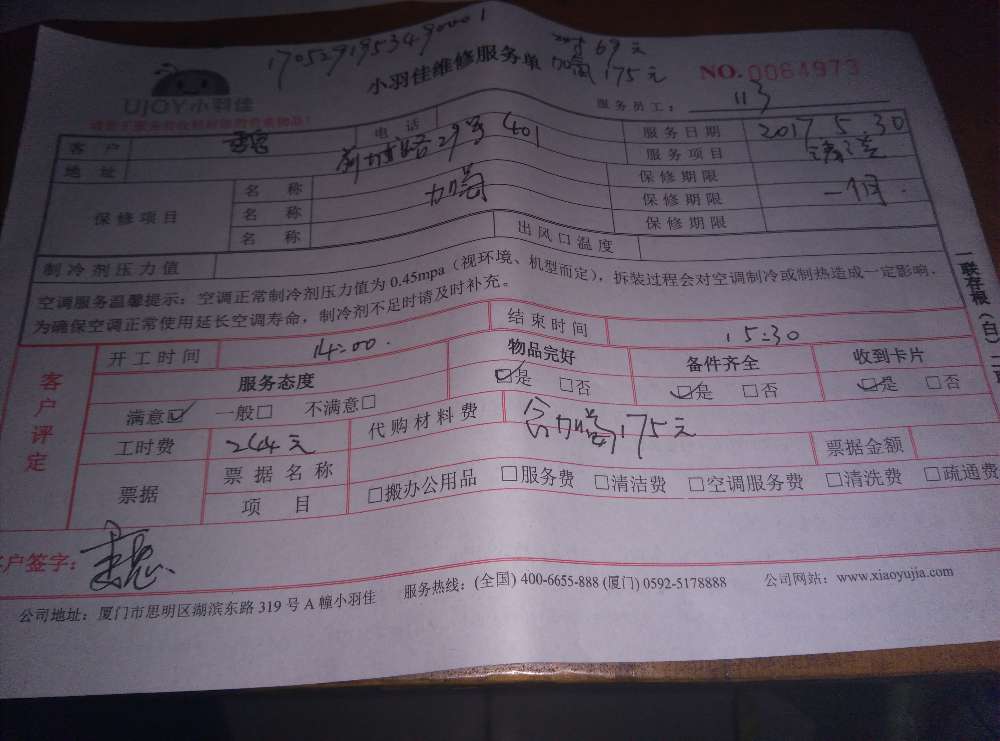 170529195349000001
69元
175元
UJOY小羽佳
小羽佳维修服务单
NO.0064973
服务员工: 113
客户 电话 服务日期 2017.5.30
地址 29号401 服务项目
保修项目 名称 保修期限
名称 加氟 保修期限 一个月.
名称 保修期限
制冷剂压力值 出风口温度
空调服务温馨提示:空调正常制冷剂压力值为0.45mpa(视环境、机型而定),拆装过程会对空调制冷或制热造成一定影响.
为确保空调正常使用延长空调寿命,制冷剂不足时请及时补充。
一联存根(白)
客户评定
开工时间 14:00. 结束时间 15:30
服务态度 物品完好 备件齐全 收到卡片
满意☑ 一般□ 不满意□ ☑是 □否 ☑是 □否 ☑是 □否
工时费 244元 代购材料费 175元
票据 票据名称 票据金额
项目 □搬办公用品 □服务费 □清洁费 □空调服务费 □清洗费 □疏通费
客户签字:
公司地址:厦门市思明区湖滨东路319号A幢小羽佳 服务热线:(全国) 400-6655-888 (厦门) 0592-5178888 公司网站:www.xiaoyujia.com